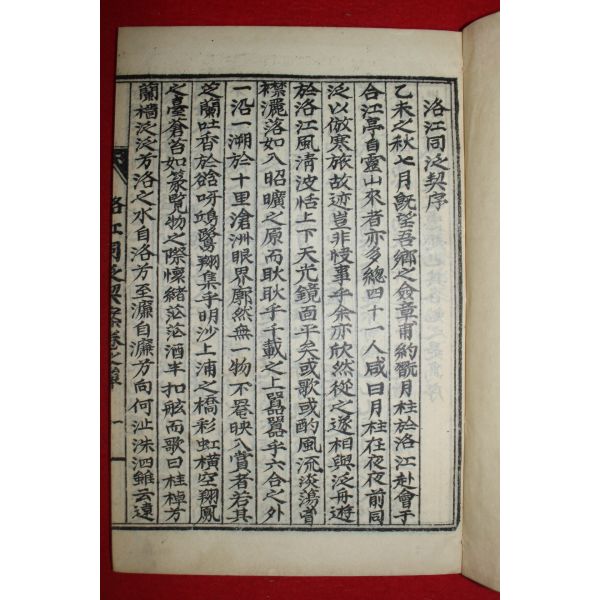 洛江同泛契序
乙未之秋七月旣望吾鄕之僉章甫約翫月柱於洛江赴會于
合江亭自靈山來者亦多總四十一人咸曰月柱在夜夜前同
泛以倣寒旅故迹豈非快事乎余亦欣然從之遂相與泛舟遊
於洛江風淸波恬上下天光鏡面平矣或歌或酌風流淡蕩實
襟灑落如入昭曠之原而耿耿乎千載之上囂囂乎六合之外
一沿一溯於十里滄洲眼界廓然無一物不罨映入賞者若其
芝蘭吐香於谽呀鴟鷺翔集乎明沙上浦之橋彩虹橫空翔鳳
之臺蒼苔如篆覧物之際懷緖茫茫酒半扣舷而歌曰桂棹兮
蘭檣泛泛兮洛之水自洛兮至濂自濂兮向何沚洙泗雖云遠
洛江同泛契案卷之單 一